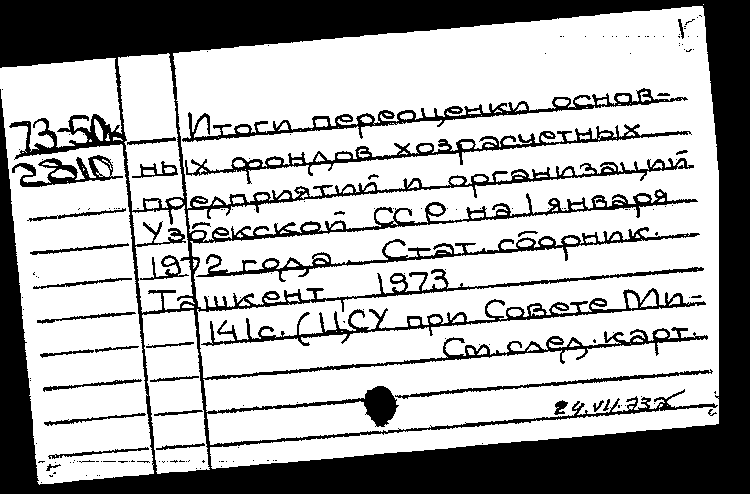 73-50к
2810
Итоги переоценки основ-
ных фондов хозрасчетных
предприятий и организаций
Узбекской ССР на 1 января
1972 года. Стат. сборник.
Ташкент, 1973.
141с. (ЦСУ при Совете Ми-
См. след. карт.
24.VII.73